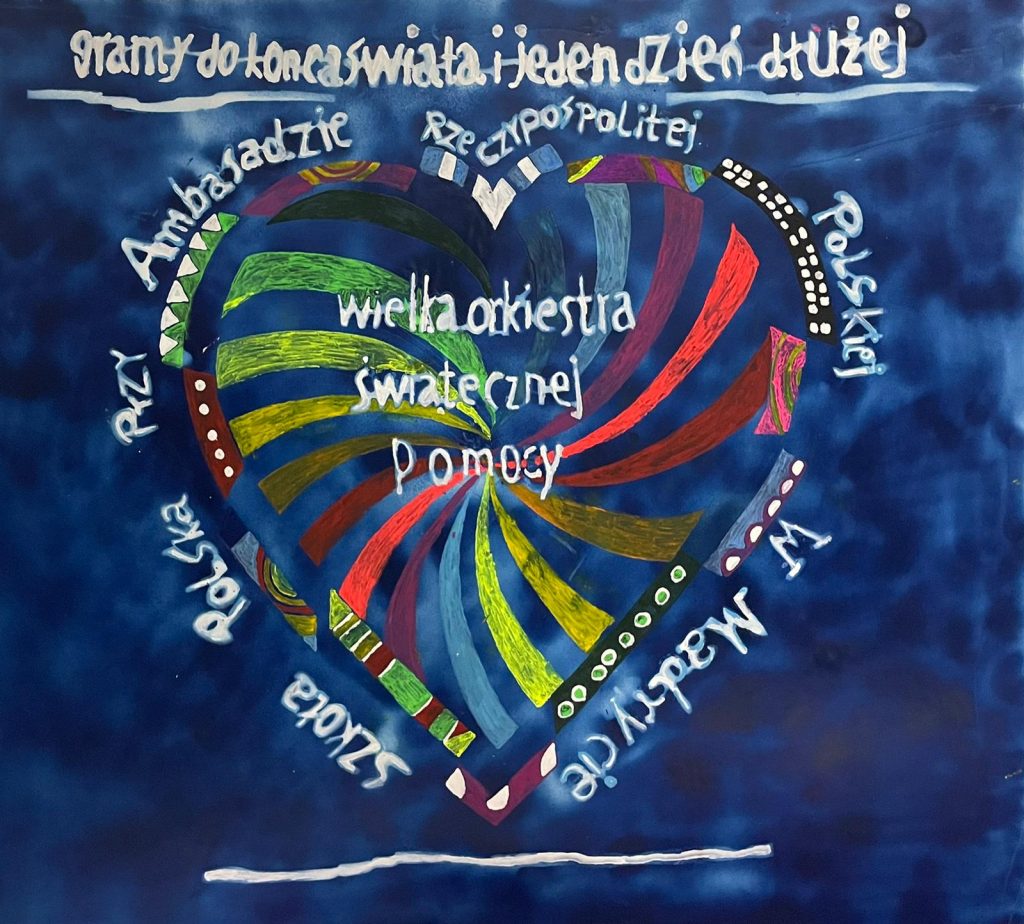 gramy do końca świata i jeden dzień dłużej
Szkoła Polska przy Ambasadzie Rzeczypospolitej Polskiej w Madrycie
wielka orkiestra
świątecznej
pomocy